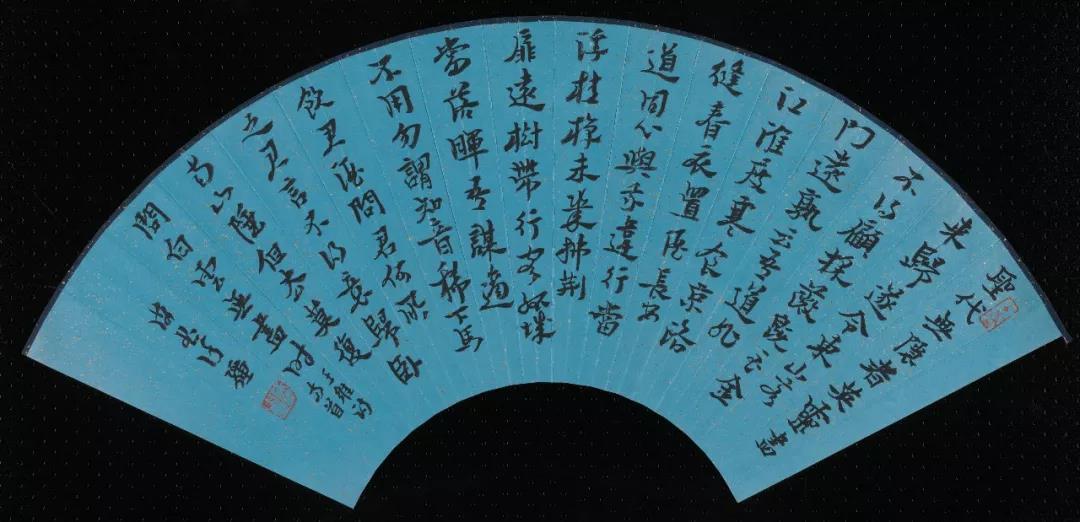 聖代
無隱者英靈盡
來歸遂令東山客
不得顧採薇既至金
門遠孰云吾道非
江淮度寒食京洛
縫春衣置酒長安
道同心與我違行當
浮桂棹未幾拂荊
扉遠樹帶行客孤城
當落暉吾謀適
不用勿謂知音稀下馬
飲君酒問君何所
之君言不得意歸臥
南山陲但去莫復
問白雲無盡時
王維詩
兩首